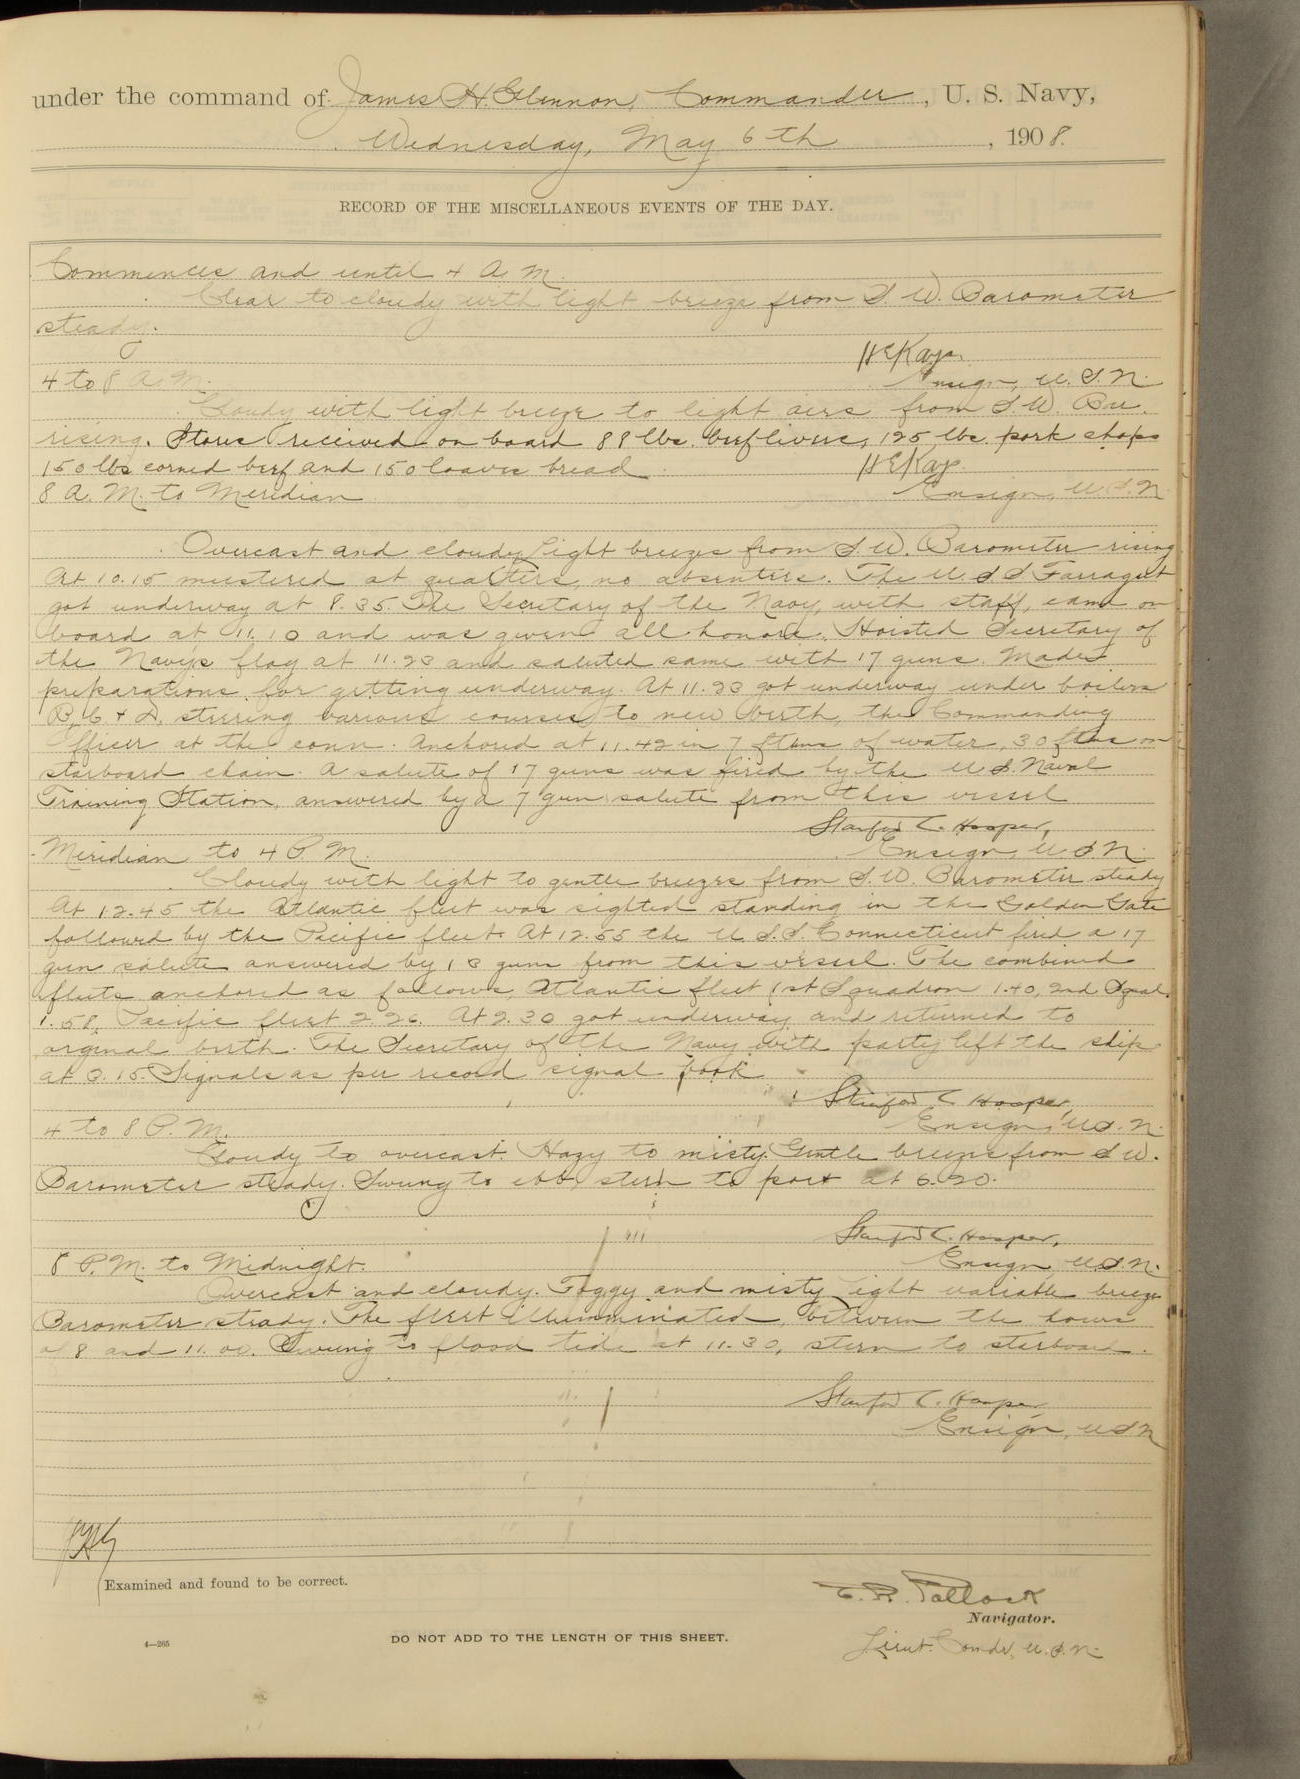 under the command of James H Glennon, Commander, U. S. Navy,
Wednesday, May 6th, 1908.
RECORD OF THE MISCELLANEOUS EVENTS OF THE DAY.
Commences and until 4 A. M.
Clear to cloudy with light breeze from S. W. Barometer
steady.
H E Kays.
4 to 8 A. M.
Ensign, U. S. N.
Cloudy with light breeze to light airs from S. W. Bar.
rising. Stores received on board 88 lbs. beef livers, 125 lbs. pork chops
150 lbs corned beef and 150 loaves bread
H E Kays.
8 A. M. to Meridian
Ensign, U. S. N.
Overcast and cloudy Light breezes from S. W. Barometer rising
At 10.15 mustered at quarters, no absentees. The U. S. S Farragut
got underway at 8.35. The Secretary of the Navy, with staff, came on
board at 11.10 and was given all honors. Hoisted Secretary of
the Navy's flag at 11.23 and saluted same with 17 guns. Made
preparations for getting underway. At 11.23 got underway under boilers
B, C & D, steering various courses to new berth, the Commanding
Officer at the conn. Anchored at 11.42 in 7 ftms of water, 30 ftms on
starboard chain. A salute of 17 guns was fired by the U.S. Naval
Training Station, answered by a 7 gun salute from this vessel
Stanford C. Hooper,
Meridian to 4 P. M.
Ensign, U S N.
Cloudy with light to gentle breezes from S. W. Barometer steady
At 12.45 the Atlantic fleet was sighted standing in the Golden Gate
followed by the Pacific fleet. At 12.55 the U. S. S. Connecticut fired a 17
gun salute answered by 13 guns from this vessel. The combined
fleets anchored as follows, Atlantic fleet 1st Squadron 1.40, 2nd Squad.
1.58, Pacific fleet 2.26. At 2.30 got underway and returned to
orginal berth. The Secretary of the Navy with party left the ship
at 3.15. Signals as per record signal book
Stanford C Hooper,
4 to 8 P. M.
Ensign, U.S. N.
Cloudy to overcast. Hazy to misty. Gentle breezes from S W.
Barometer steady. Swung to ebb, stern to port at 6.20.
Stanford C. Hooper,
8 P. M. to Midnight.
Ensign, U.S.N.
Overcast and cloudy. Foggy and misty Light variable breeze
Barometer steady. The fleet illumminated, between the hours
of 8 and 11.00. Swung to flood tide at 11.30, stern to starboard.
Stanford C. Hooper,
Ensign, U S N
JHG
Examined and found to be correct.
E. R. Pollock
Navigator.
4—265
DO NOT ADD TO THE LENGTH OF THIS SHEET.
Lieut. Comdr, U. S. N.